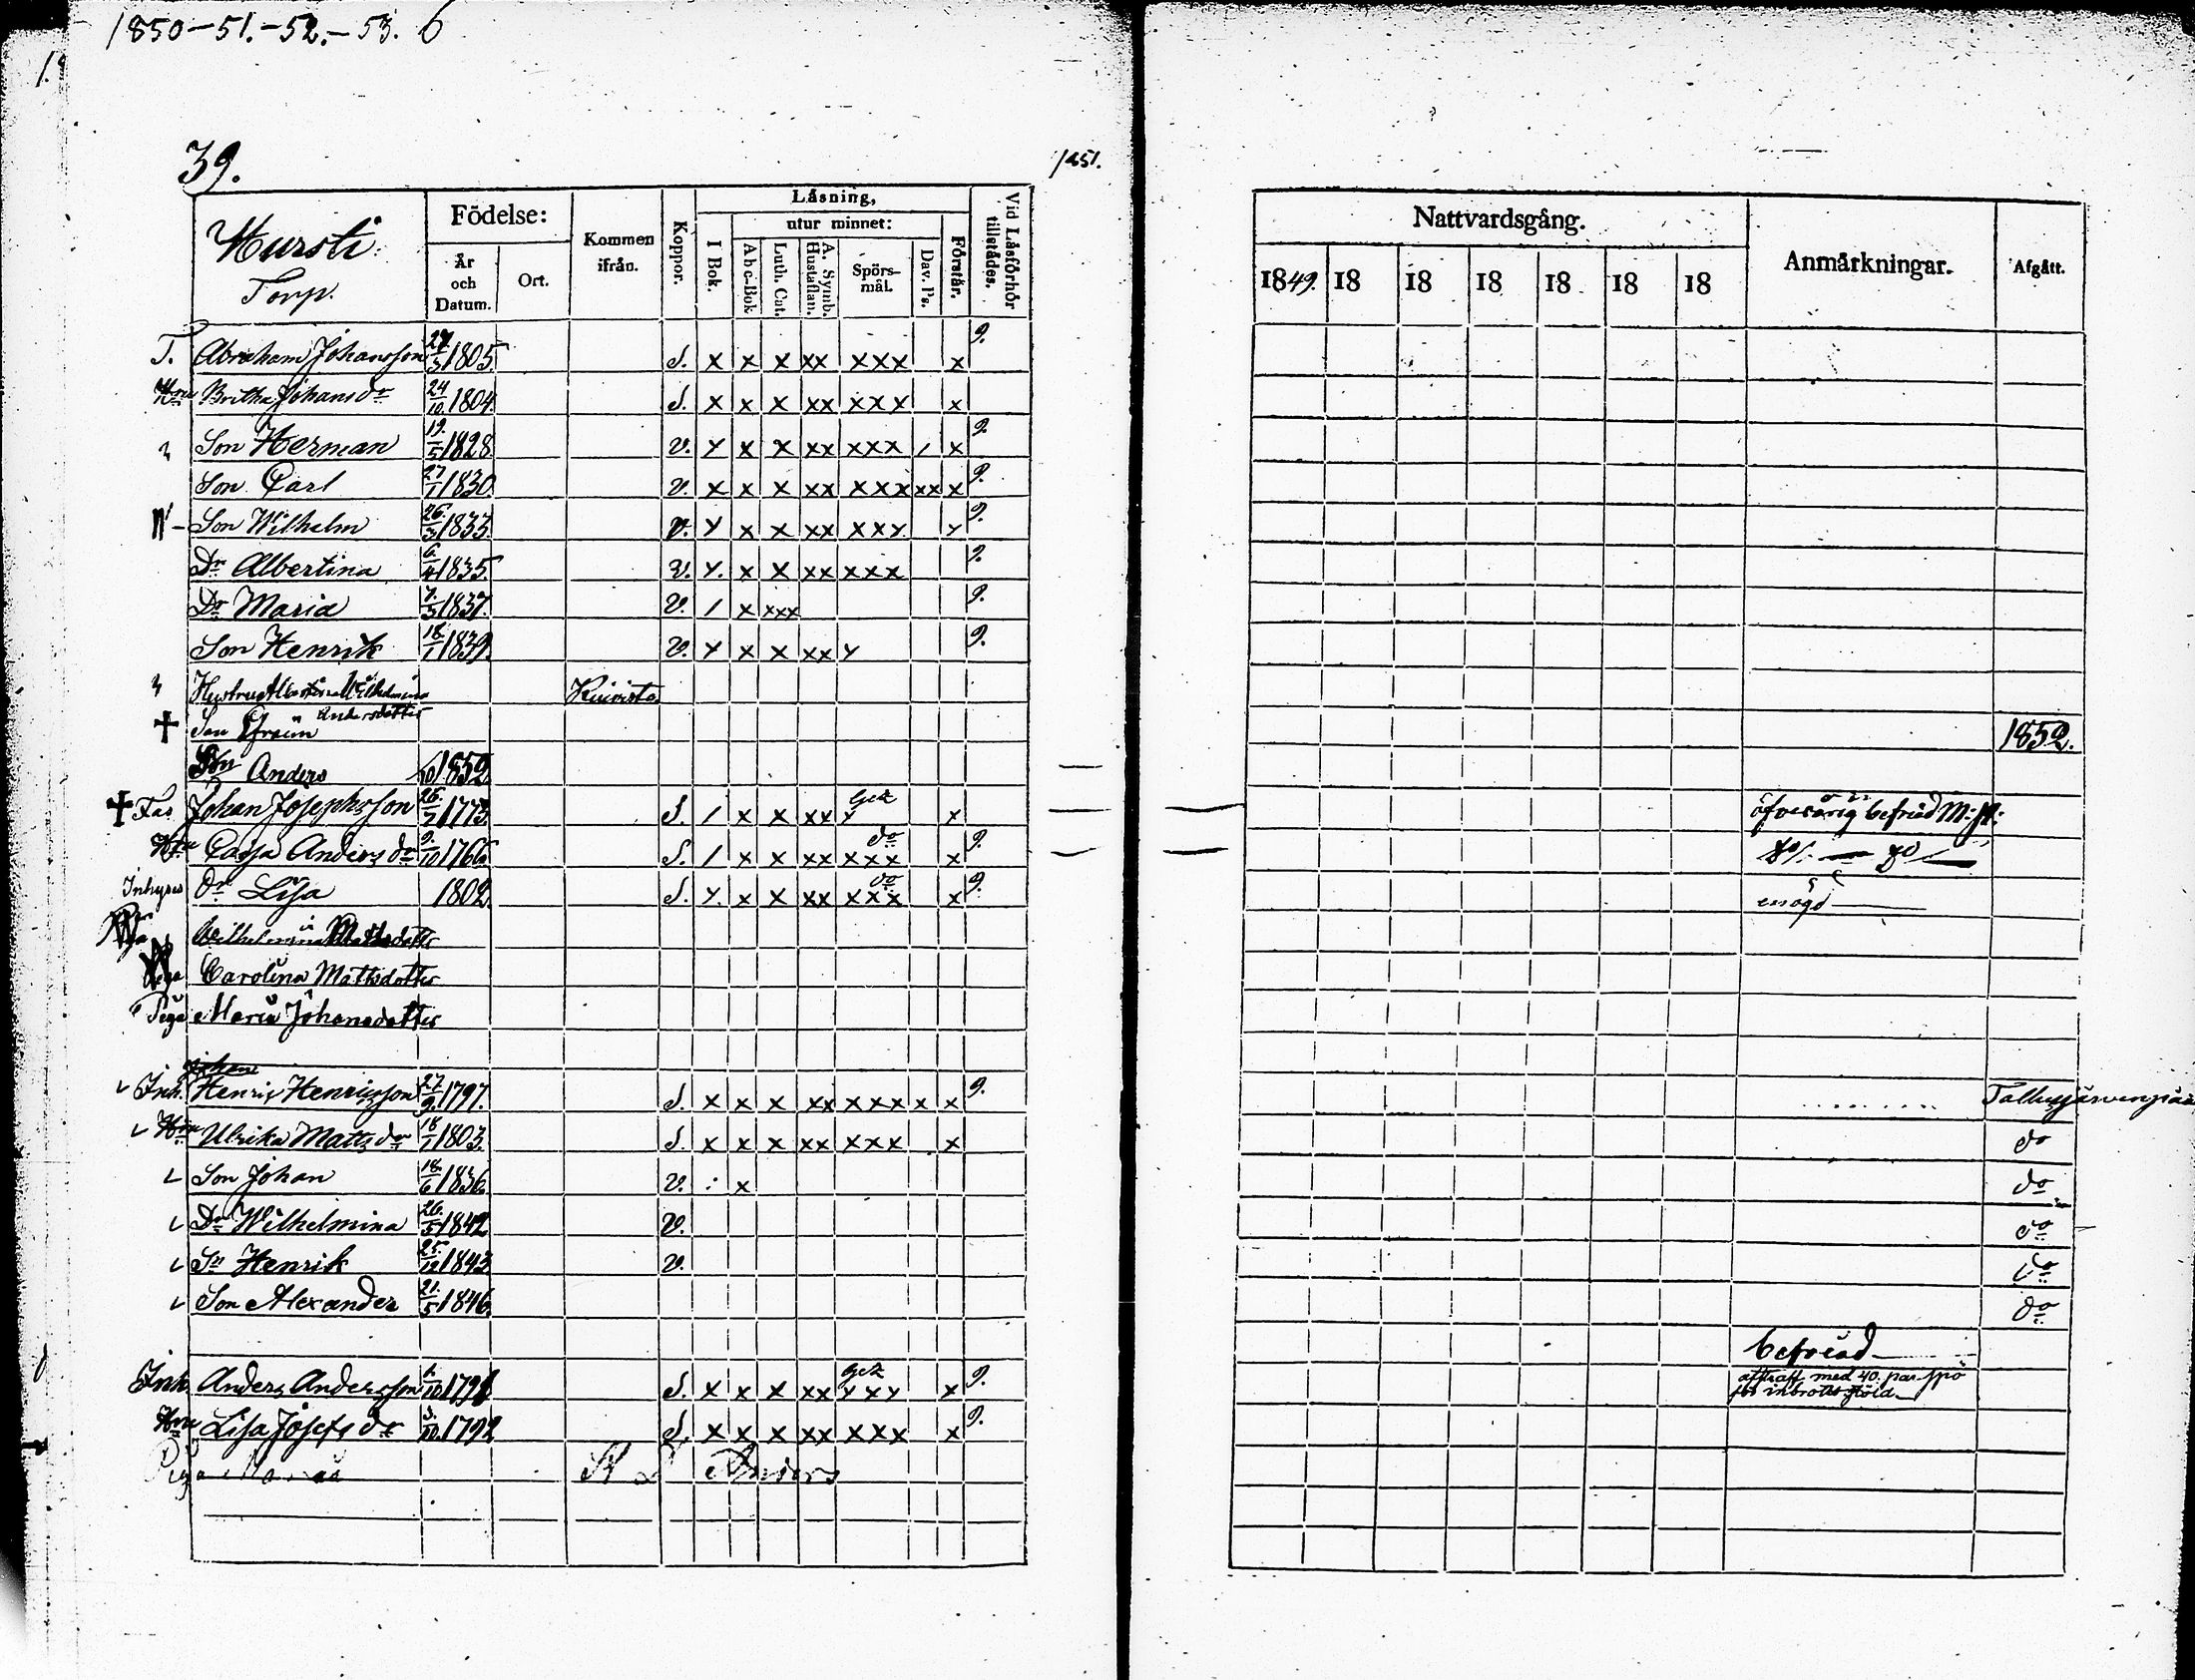 1850-51.-52.-53. 6
39.
1851.
Hursti.
Torp.
Födelse:
År och Datum.
Ort.
Kommen ifrån.
Koppor.
Läsning,
I Bok.
utur minnet:
Abc-Bok
Luth. Cat.
A. Symb. Hustaflan.
Spörs-mål.
Dav. Ps.
Förstår.
Vid Läsförhör tillstädes.
Nattvardsgång.
1849. 18 18 18 18 18 18
Anmärkningar.
Afgått.
T. Abraham Johansson 29/3 1805. S. x x x xx xxx x 9.
Hru Britha Johans dr 24/10. 1804. S. x x x xx xxx x
Son Herman 19./5 1828. v. y x x xx xxx / x 9.
Son Carl 27/1 1830. v. x x x xx xxx xx x 9.
Son Wilhelm 26./3 1833. v. y x x xx xxy y 9.
Dr Albertina 6./4 1835. v. y. x x xx xxx 9.
Dr Maria 7./5 1837. v. / x xxx 9.
Son Henrik 18./1 1839. v. y x x xx y 9.
Hustru Albertina Wilhelmina Andersdotter Kuivisto.
† Son Efraim 1852.
Son Anders /10 1852
† Far Johan Josephsson 26./7 1773. S. / x x xx y x öfverårig befriad
Hru Cajsa Anders dr 9./10 1766. S. / x x xx do xxx x 9.
Inhyses dr Lisa 1802. S. y. x x xx do xxx x 9. enögd
Wilhelmina Mattsdotter
Piga Carolina Mattsdotter
Piga Maria Johansdotter
Johan
Inh. Henric Henricsson 27./9. 1797. S. x x x xx xxx x x 9.
Hru Ulrika Matts dr 18/1 1803. S. x x x xx xxx x do
Son Johan 18./6 1836. v. : x do
Dr Wilhelmina 26./5 1842 v. do
Sn Henrik 25./12 1843 v. do
Son Alexander 21./5 1846. do
befriad
Inh. Anders Andersson 6./10 1791 S. x x x xx xyy x 9. afstraff med 40. par spö
för inbrotts stöld
Hru Lisa Josefs dr 3./10. 1792 S. x x x xx xxx x 9.
Piga Anders